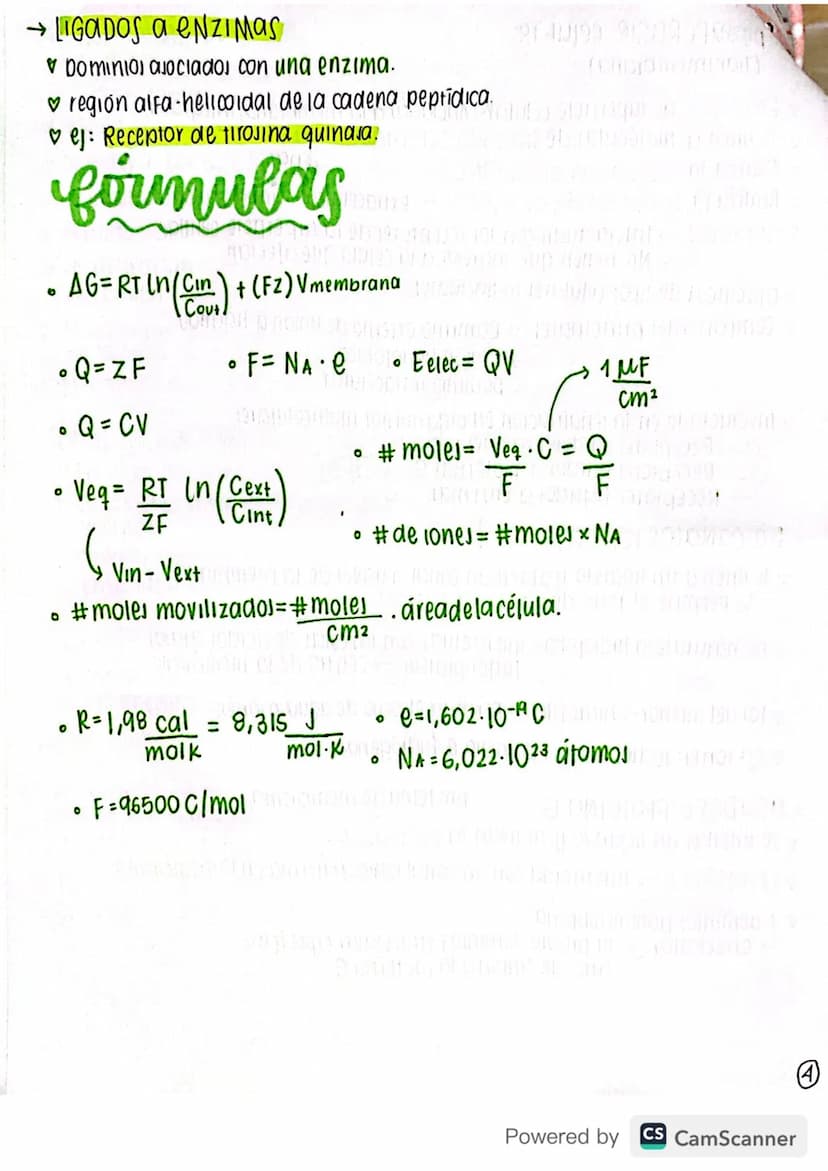 → LIGADOS a eNZIMas
♥ Dominios asociados con una enzima.
♥ región alfa-helicoidal de la cadena peptídica.
♥ ej: Receptor de tirosina quinasa.
fórmulas
• ΔG = RT ln(Cin/Cout) + (FZ) Vmembrana
• Q = ZF • F = NA · e • Eelec = QV → 1 μF/cm²
• Q = CV
• # moles = Veq · C/F = Q/F
• Veq = RT/ZF ln(Cext/Cint)
• # de iones = # moles × NA
Vin - Vext
• # moles movilizados = # moles/cm² . área de la célula.
• R = 1,98 cal/mol K = 8,315 J/mol·K • e = 1,602·10⁻¹⁹ C
• NA = 6,022·10²³ átomos
• F = 96500 C/mol
A
Powered by CS CamScanner